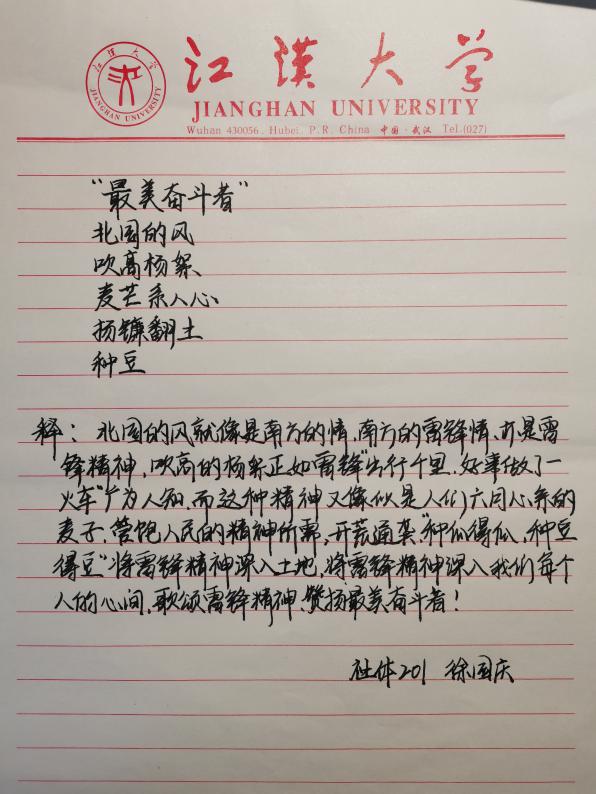 江汉大学
江汉大学
JIANGHAN UNIVERSITY
JIANGHAN UNIVERSITY
Wuhan 430056, Hubei, P.R. China 中国·武汉 Tel.(027)
“最美奋斗者”
北国的风
吹高杨絮
麦芒系人心
扬镰翻土
种豆
释：北国的风就像是南方的情，南方的雷锋情，亦是雷
锋精神，吹高的杨絮正如雷锋“出行千里，好事做了一
火车”广为人知，而这种精神又像似是人们六月心系的
麦子，管饱人民的精神所需，开荒通垄，“种瓜得瓜，种豆
得豆”将雷锋精神深入土地，将雷锋精神深入我们每个
人的心间，歌颂雷锋精神，赞扬最美奋斗者！
社体201 徐国庆